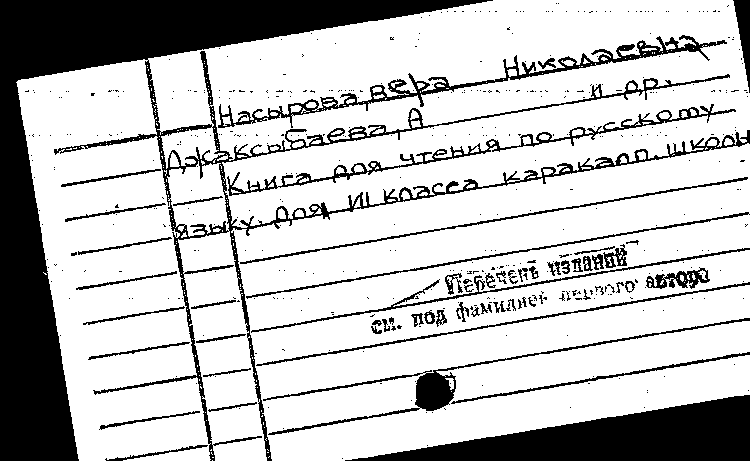 Насырова, Вера Николаевна
Джаксыбаева, А и др.
Книга для чтения по русскому
языку. Для III класса каракалп. школы
Перечень изданий
см. под фамилией первого автора